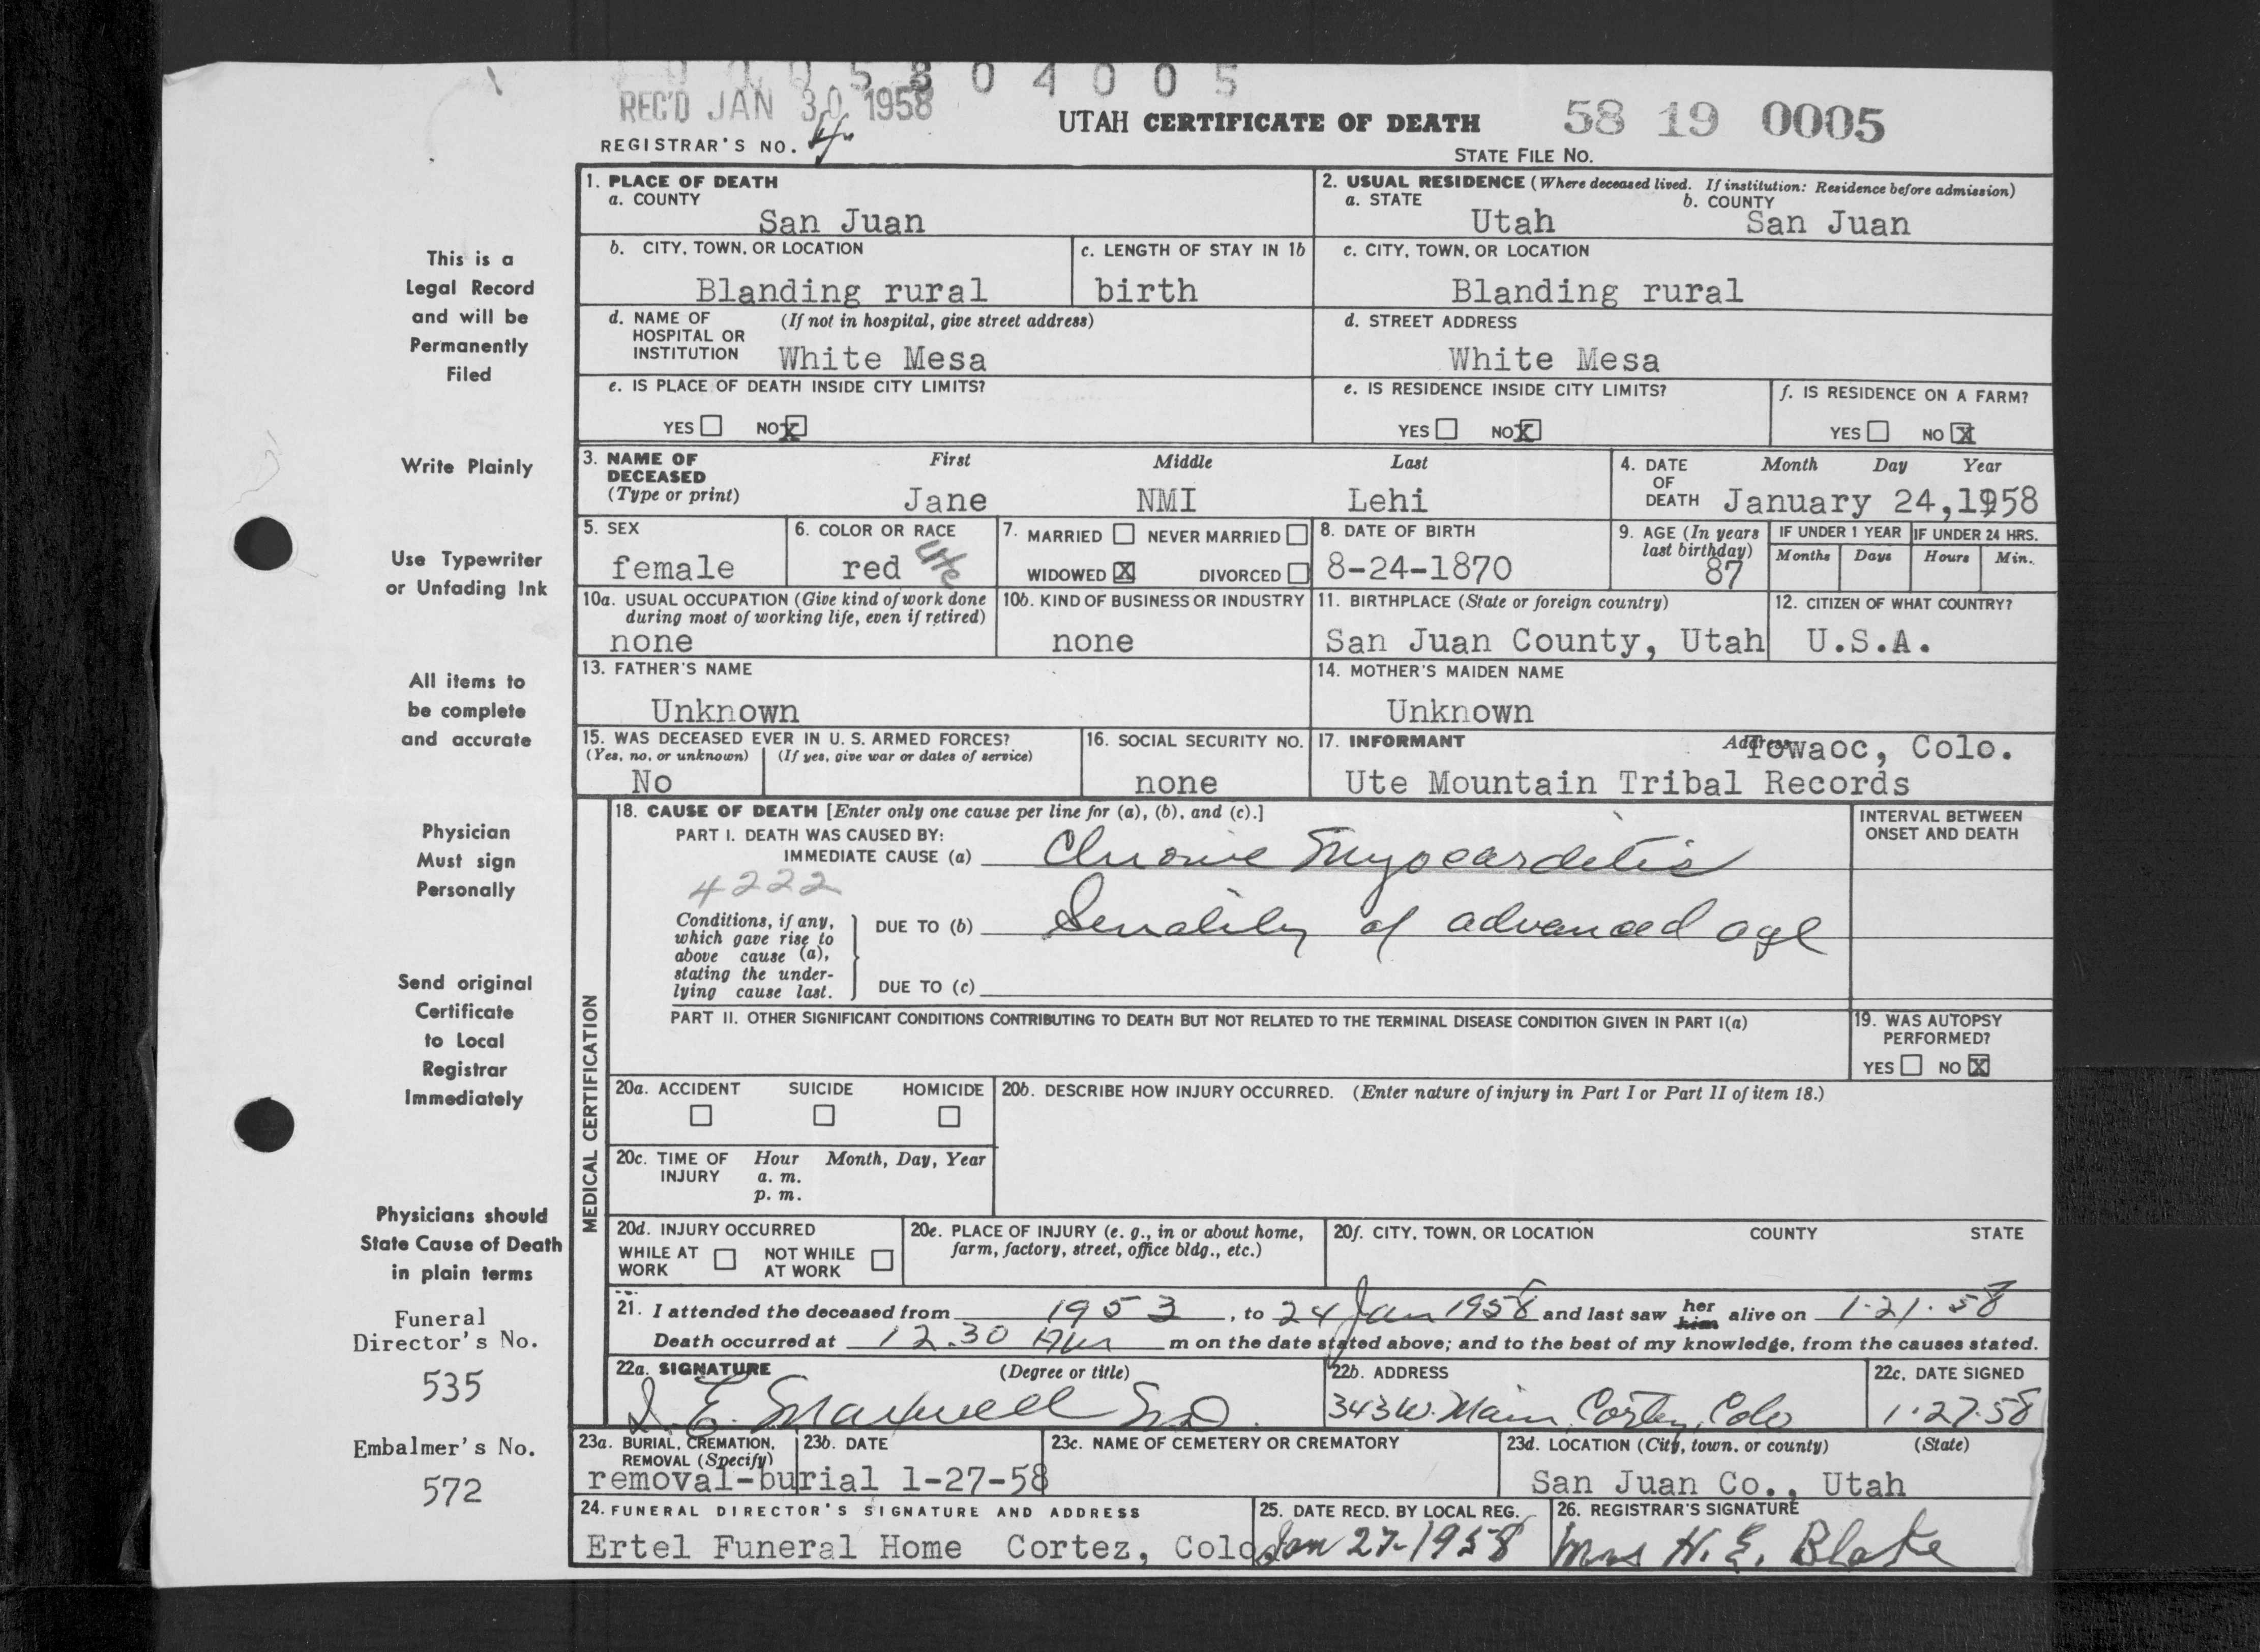 0 0 0 5 8 0 4 0 0 5
REC'D JAN 30 1958
UTAH CERTIFICATE OF DEATH 58 19 0005
REGISTRAR'S NO. 4
STATE FILE No.
This is a
Legal Record
and will be
Permanently
Filed
Write Plainly
Use Typewriter
or Unfading Ink
All items to
be complete
and accurate
Physician
Must sign
Personally
Send original
Certificate
to Local
Registrar
Immediately
Physicians should
State Cause of Death
in plain terms
Funeral
Director's No.
535
Embalmer's No.
572
1. PLACE OF DEATH
a. COUNTY
San Juan
2. USUAL RESIDENCE (Where deceased lived. If institution: Residence before admission)
a. STATE b. COUNTY
Utah San Juan
b. CITY, TOWN, OR LOCATION
Blanding rural
c. LENGTH OF STAY IN 1b
birth
c. CITY, TOWN, OR LOCATION
Blanding rural
d. NAME OF (If not in hospital, give street address)
HOSPITAL OR
INSTITUTION White Mesa
d. STREET ADDRESS
White Mesa
e. IS PLACE OF DEATH INSIDE CITY LIMITS?
YES NO X
e. IS RESIDENCE INSIDE CITY LIMITS?
YES NO X
f. IS RESIDENCE ON A FARM?
YES NO X
3. NAME OF First Middle Last
DECEASED
(Type or print) Jane NMI Lehi
4. DATE Month Day Year
OF
DEATH January 24,1958
5. SEX
female
6. COLOR OR RACE
red Ute
7. MARRIED NEVER MARRIED
WIDOWED X DIVORCED
8. DATE OF BIRTH
8-24-1870
9. AGE (In years
last birthday)
87
IF UNDER 1 YEAR IF UNDER 24 HRS.
Months Days Hours Min.
10a. USUAL OCCUPATION (Give kind of work done
during most of working life, even if retired)
none
10b. KIND OF BUSINESS OR INDUSTRY
none
11. BIRTHPLACE (State or foreign country)
San Juan County, Utah
12. CITIZEN OF WHAT COUNTRY?
U.S.A.
13. FATHER'S NAME
Unknown
14. MOTHER'S MAIDEN NAME
Unknown
15. WAS DECEASED EVER IN U. S. ARMED FORCES?
(Yes, no, or unknown) (If yes, give war or dates of service)
No
16. SOCIAL SECURITY NO.
none
17. INFORMANT Address Towaoc, Colo.
Ute Mountain Tribal Records
MEDICAL CERTIFICATION
18. CAUSE OF DEATH [Enter only one cause per line for (a), (b), and (c).]
PART I. DEATH WAS CAUSED BY:
IMMEDIATE CAUSE (a) Chronic Myocarditis
4222
Conditions, if any,
which gave rise to
above cause (a),
stating the under-
lying cause last.
DUE TO (b) Senality of advanced age
DUE TO (c)
INTERVAL BETWEEN
ONSET AND DEATH
PART II. OTHER SIGNIFICANT CONDITIONS CONTRIBUTING TO DEATH BUT NOT RELATED TO THE TERMINAL DISEASE CONDITION GIVEN IN PART I(a)
19. WAS AUTOPSY
PERFORMED?
YES NO X
20a. ACCIDENT SUICIDE HOMICIDE
20b. DESCRIBE HOW INJURY OCCURRED. (Enter nature of injury in Part I or Part II of item 18.)
20c. TIME OF Hour Month, Day, Year
INJURY a. m.
p. m.
20d. INJURY OCCURRED
WHILE AT NOT WHILE
WORK AT WORK
20e. PLACE OF INJURY (e. g., in or about home,
farm, factory, street, office bldg., etc.)
20f. CITY, TOWN, OR LOCATION COUNTY STATE
21. I attended the deceased from 1953, to 24 Jan 1958 and last saw her him alive on 1-21-58
Death occurred at 12.30 AM m on the date stated above; and to the best of my knowledge, from the causes stated.
22a. SIGNATURE (Degree or title)
E. Maxwell MD.
22b. ADDRESS
343 W. Main Cortez, Colo
22c. DATE SIGNED
1-27-58
23a. BURIAL, CREMATION,
REMOVAL (Specify)
removal-burial
23b. DATE
1-27-58
23c. NAME OF CEMETERY OR CREMATORY
23d. LOCATION (City, town, or county) (State)
San Juan Co., Utah
24. FUNERAL DIRECTOR'S SIGNATURE AND ADDRESS
Ertel Funeral Home Cortez, Colo
25. DATE RECD. BY LOCAL REG.
Jan 27-1958
26. REGISTRAR'S SIGNATURE
Mrs H. E. Blake